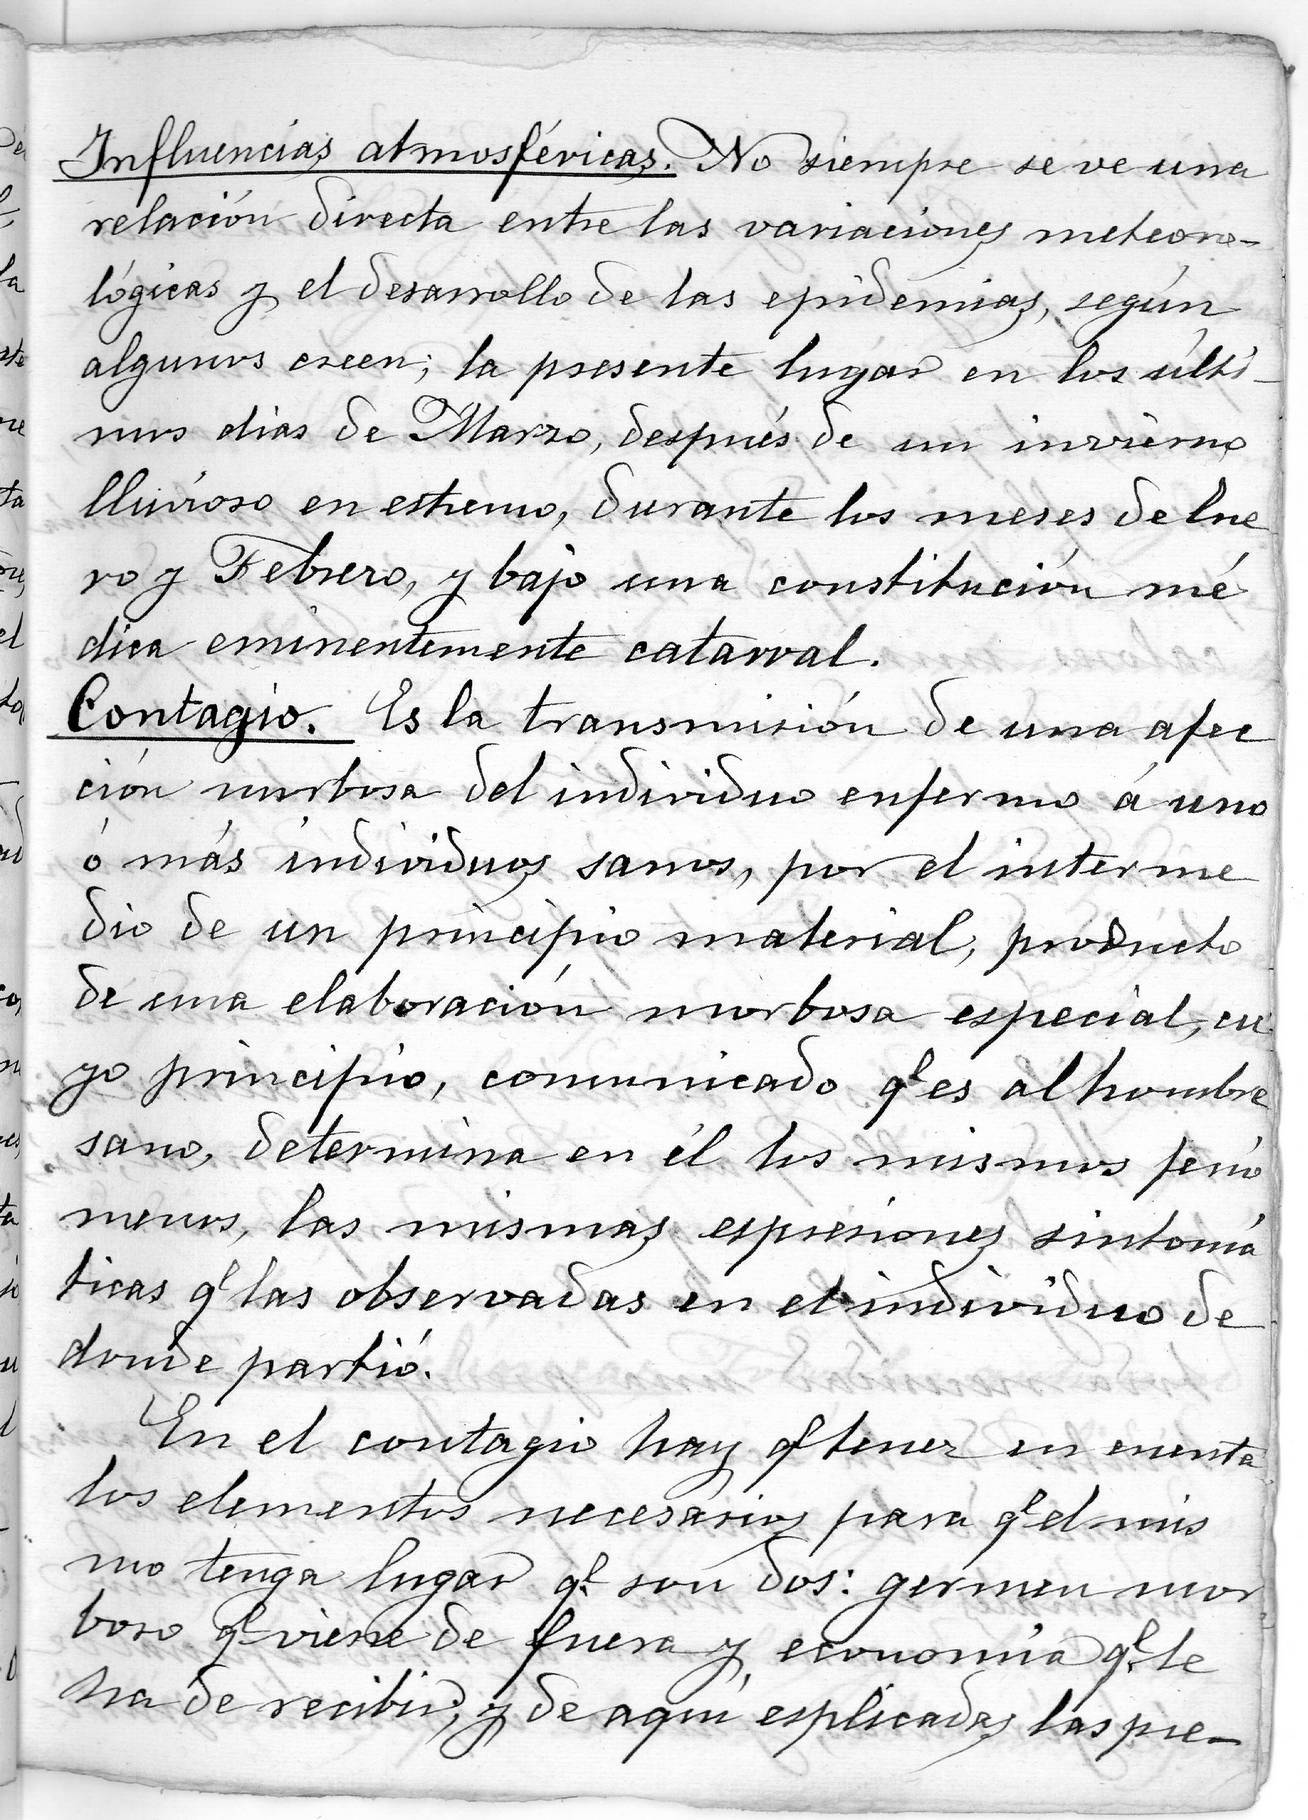 Influencias atmosféricas. No siempre se ve una
relación directa entre las variaciones meteoro-
lógicas y el desarrollo de las epidemias, según
algunos creen; la presente lugar en los últi-
mos dias de Marzo, después de un invierno
lluvioso en estremo, durante los meses de Ene
ro y Febrero, y bajo una constitución mé
dica eminentemente catarral.
Contagio. Es la transmisión de una afec
ción morbosa del individuo enfermo á uno
ó más individuos sanos, por el interme
dio de un principio material, producto
de una elaboración morbosa especial, cu
yo principio, comunicado q.e es al hombre
sano, determina en él los mismos fenó
menos, las mismas espresiones sintomá
ticas q.e las observadas en el individuo de
donde partió.
En el contagio hay q.e tener en cuenta
los elementos necesarios para q.e el mis
mo tenga lugar q.e son dos: germen mor
boso q.e viene de fuera y economía q.e le
ha de recibir; y de aquí esplicadas las pre-